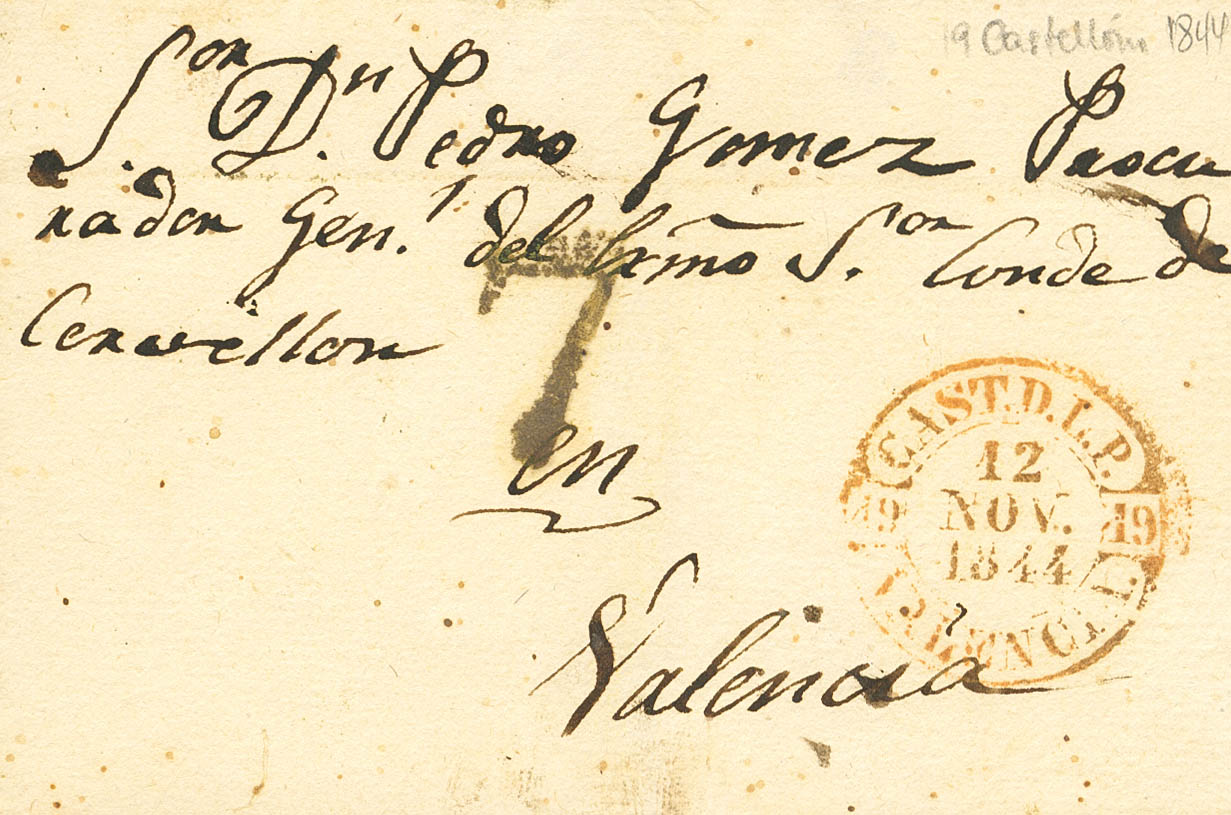 19 Castellón 1844
S.or D.n Pedro Gomez Procu
rador Gen.l del Exmo S.or Conde de
Cervellon
7
en
Valencia
CAST.D.L.P.
12
NOV.
1844
19 19
VALENCIA.